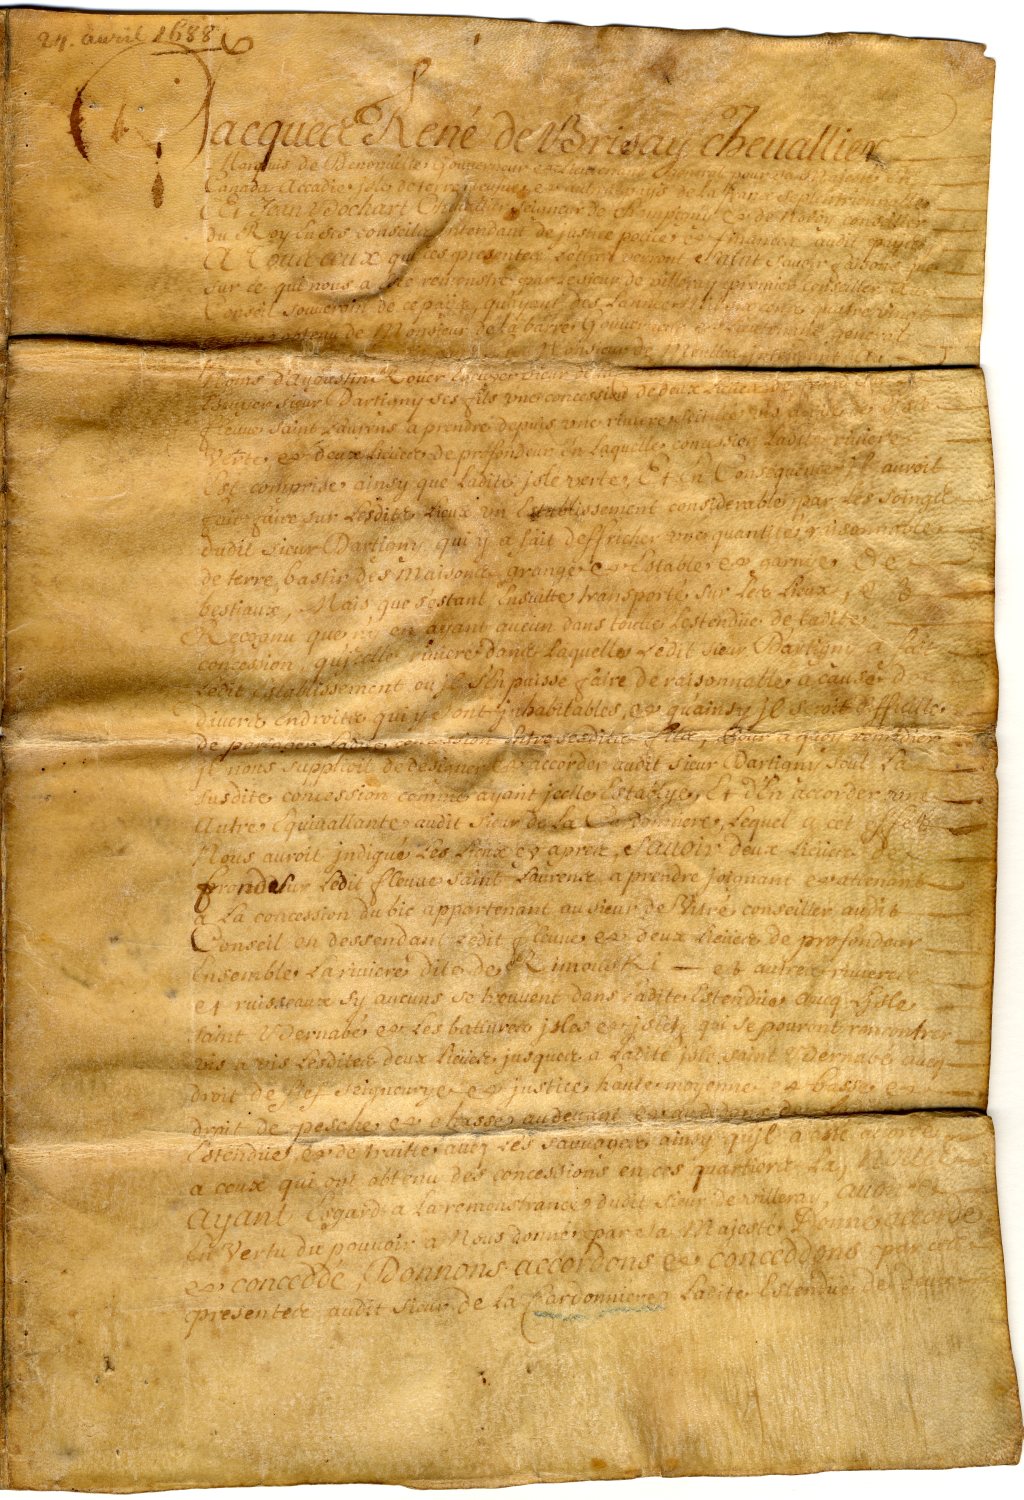 24. avril 1688
Jacques René de Brisay chevallier
Marquis de Denonville Gouverneur et Lieutenant General pour sa Majesté en
Canada Accadie isle de terre neufve et autres pays de la france septentrionnalle
Et Jean Bochart Chevallier seigneur de Champigny de Noroy conseiller
du Roy en ses conseils Intendant de justice police et finances audit pays
A Tous ceux que ces presentes lettres verront salut savoir faisons que
sur ce qui nous a esté remonstré par le sieur de villeray premier conseiller au
Conseil souverain de ce païs, quayant des l'année mil six cent quatre vingt
obtenu de Monsieur de la barre Gouverneur et Lieutenant general
Monsieur de Meulles Intendant
Noms d'Augustin Rouer Escuyer sieur
Escuyer sieur Dartigny ses fils une concession de deux lieües de front sur le
fleuve saint Laurens a prendre depuis une riviere scituée vis a vis l'isle
verte et deux lieües de profondeur en laquelle concession ladite riviere
Est comprise ainsy que ladite isle verte, Et en Consequence il auroit
faict faire sur lesdits Lieux un Establissement considerable par les soings
dudit sieur Dartigny qui y a fait deffricher une quantité raisonnable
de terre bastir des Maisons, grange et Estable et garnie de
bestiaux, Mais que s'estant Ensuitte transporté sur les Lieux, et
Recognu que n'y en ayant aucun dans toutte l'estendüe de ladite
concession, qu'icelle riviere dans laquelle ledit sieur Dartigny a fait
Ledit Establissement ou il s'en puisse faire de raisonnable a cause de
divers endroits qui y sont inhabitables, et quainsy il seroit difficille
de partager ladite concession Entre sesdits fils, Pour a quoy remedier
il nous supplioit de designer et accorder audit sieur Dartigny seul La
susdite concession comme ayant icelle Establye, Et d'En accorder une
Autre Equivallante audit sieur de la Cardonniere, Lequel a cet effet
Nous auroit indiqué Les Lieux cy apres, sçavoir deux lieües de
fronde sur Ledit fleuve saint Laurens a prendre joignant et attenant
a La concession du bic appartenant au sieur de Vitré conseiller audit
Conseil en dessendant Ledit fleuve et deux lieües de profondeur
Ensemble La riviere dite de Rimouski — et autres rivieres
et ruisseaux sy aucuns se trouvent dans ladite Estendüe avecq L'isle
saint Bernabé et Les batures isles et islets qui se pouront rencontrer
vis a vis Lesdites deux lieües jusques a Ladite isle saint Bernabé avecq
droit de fief seigneurye et justice haute moyenne et basse et
droit de pesche et chasse au devant et au dedans de
Estendüe, et de traitte avec Les sauvages ainsy qu'il a esté accordé
a ceux qui ont obtenu des concessions en ces quartiers La, Nous
ayant Esgard a La remonstrance dudit sieur de villeray, avons
En vertu du pouvoir a Nous donné par sa Majesté Donné accordé
et conceddé, Donnons accordons et conceddons par ces
presentes audit sieur de la Cardonniere Ladite Estendüe de deux